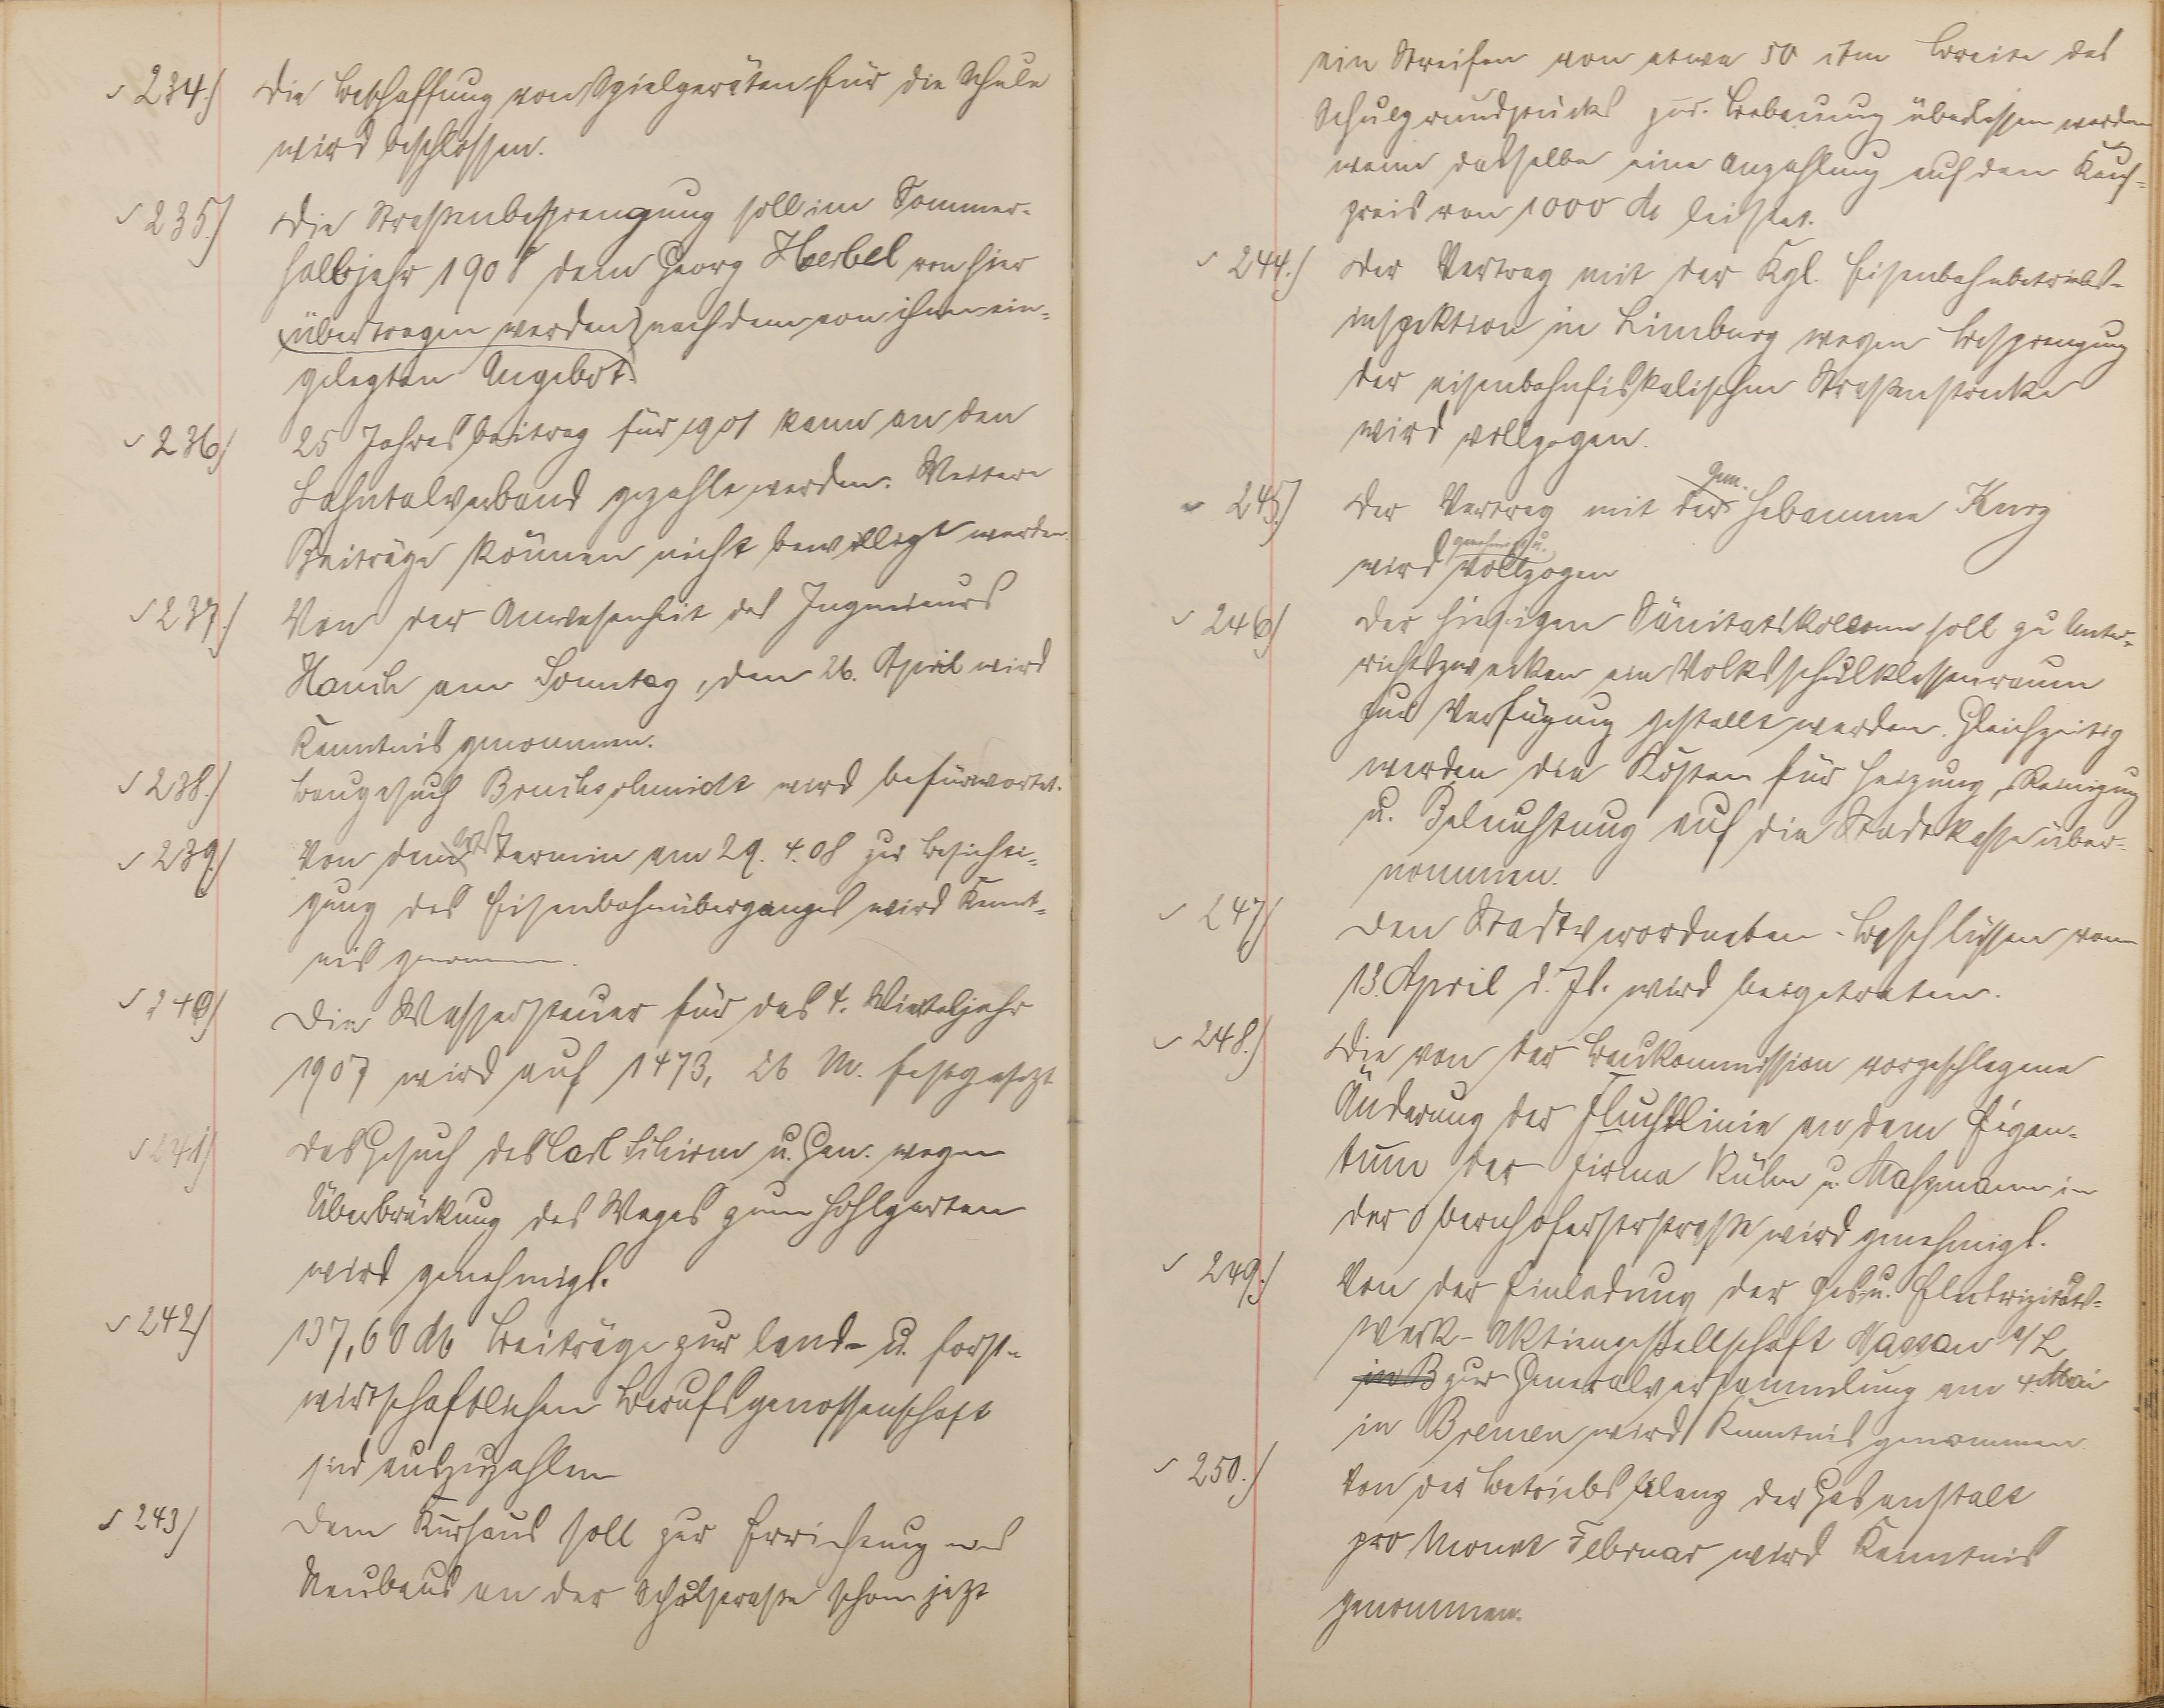 234.) Die Beschaffung von Spielgeräten für die Schule
wird beschlossen.
235.) Die Straßenbesprengung soll im Sommer-
halbjahr 1908 dem Georg Herbel von hier
(übertragen werden) nach dem von ihm ein-
gelegten Angebot.
236) 25 Jahresbeitrag für 1908 kann an den
Lahntalverband gezahlt werden. Weitere
Beiträge können nicht bewilligt werden.
237.) Von der Anwesenheit des Ingenieurs
Hauck am Sonntag, den 26. April wird
Kenntnis genommen.
238.) Baugesuch Bruchschmidt wird befürwortet.
239.) Von dem Termin am 29.4.08 zur Besichti-
gung des Eisenbahnüberganges wird Kennt-
nis genommen.
240) Die Wassersteuer für das 4. Vierteljahr
1907 wird auf 1473, 26 M. festgesetzt
241) Das Gesuch des Carl Schirm u. Gen. wegen
Überbrückung des Weges zum Hohlgarten
wird genehmigt.
242) 137,60 M Beiträge zur land- u. forst-
wirtschaftlichen Berufsgenossenschaft
sind auszuzahlen
243) Dem Kurhaus soll zur Errichtung eines
Neubaus an der Schulstraße schon jetzt
ein Streifen von etwa 50 ctm Breite des
Schulgrundstücks zur Bebauung überlassen werden
wenn dasselbe eine Anzahlung auf den Kauf-
preis von 1000 M leistet.
244.) Der Vertrag mit der Kgl. Eisenbahnbetriebs-
inspektion in Limburg wegen Besprengung
der eisenbahnfiskalischen Straßenstrecke
wird vollzogen.
245.) Der Vertrag mit der Gem. Hebamme Kurz
wird genehmigt u. vollzogen
246) Der hiesigen Sänitätskolonne soll zu Unter-
richtszwecken ein Volksschulklassenraum
zur Verfügung gestellt werden. Gleichzeitig
werden die Kosten für Heizung, Reinigung
u. Beleuchtung auf die Stadtkasse über-
nommen.
247) Den Stadtverordneten-Beschlüssen vom
13. April d. Js. wird beigetreten.
248.) Die von der Baukommission vorgeschlagene
Änderung der Fluchtlinie an dem Eigen-
tum der Firma Kühn u. in
der wird genehmigt.
249.) Von der Einladung der Gas- u. Elektrizitäts-
werk-Aktiengesellschaft Nassau a/L
in B zur Generalversammlung am 4. Mai
in Bremen wird Kenntnis genommen.
250.) Von der Betriebsbilanz der Gasanstalt
pro Monat Februar wird Kenntnis
genommen.